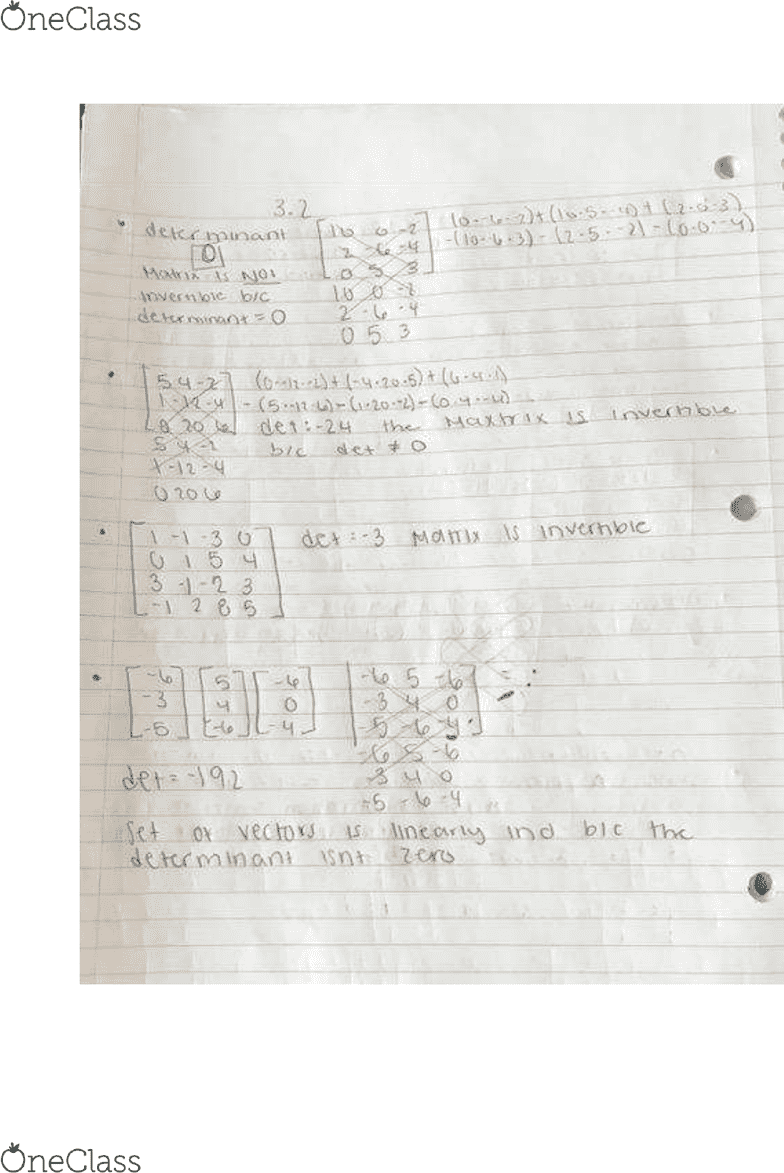 OneClass
3.2
determinant
0
Matrix is NOT
invertible b/c
determinant = 0
[10 0 -2]
2 -6 -4
0 5 3
10 0 -2
2 -6 -4
0 5 3
5 4 -2
1 -12 -4
0 20 6
5 4 -2
1 -12 -4
0 20 6
det: -24 the Maxtrix is invertible
b/c det ≠ 0
1 -1 -3 0
0 1 5 4
3 -1 -2 3
-1 2 8 5
det: -3 Matrix is invertible
[-6] [5] [-6] [-6 5 -6]
-3 4 0 -3 4 0
-5 -6 -4 -5 -6 -4
-6 5 -6
det = -192 -3 4 0
-5 -6 -4
Set of vectors is linearly ind b/c the
determinant isnt zero
OneClass